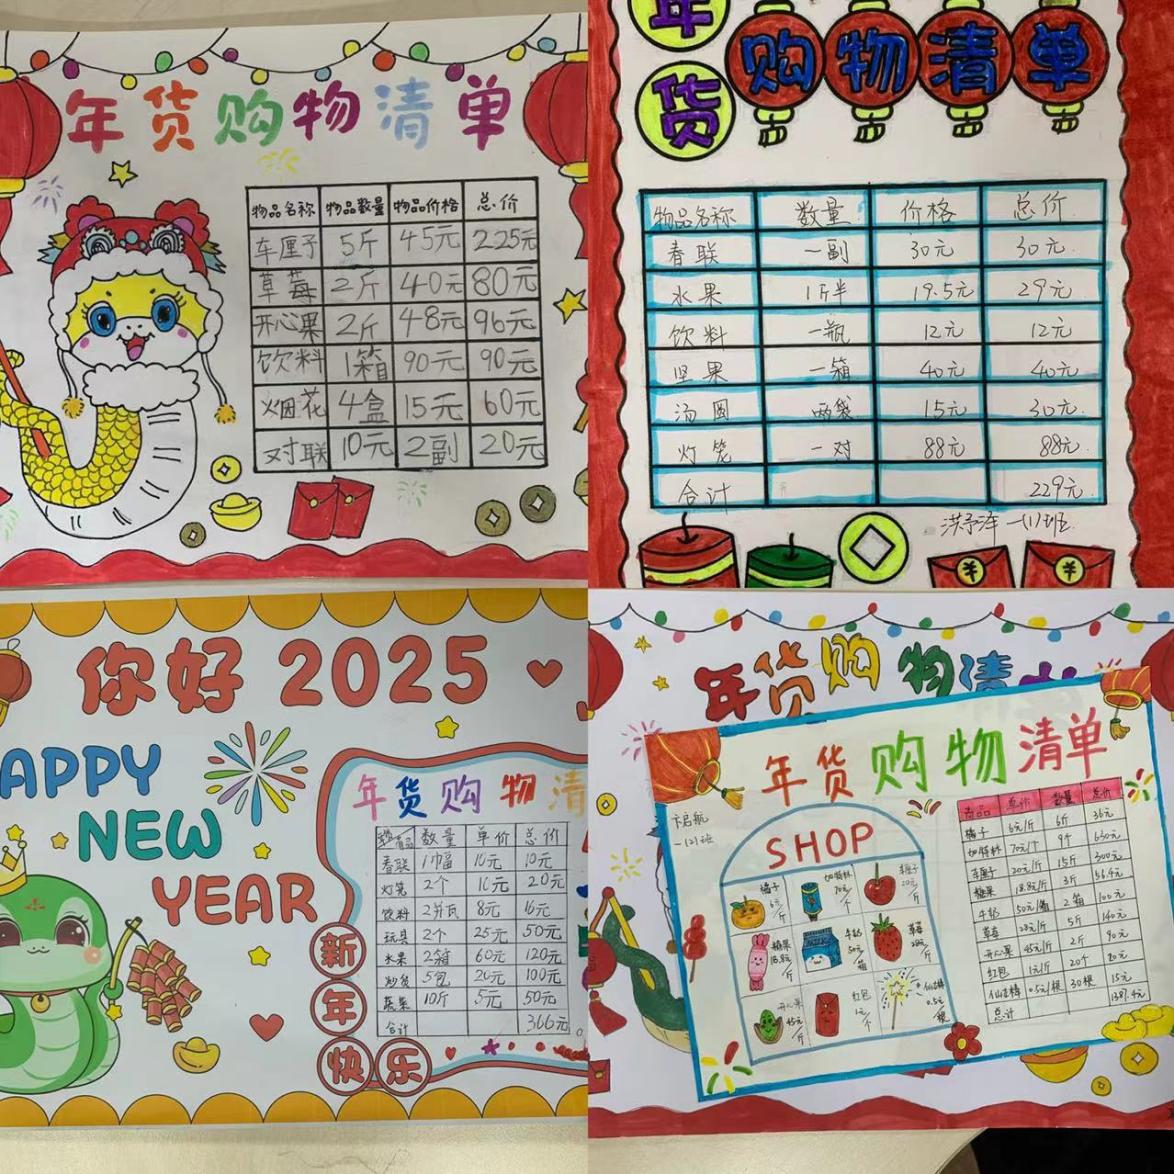 年货购物清单
物品名称 物品数量 物品价格 总价
车厘子 5斤 45元 225元
草莓 2斤 40元 80元
开心果 2斤 48元 96元
饮料 1箱 90元 90元
烟花 4盒 15元 60元
对联 10元 2副 20元
年货购物清单
物品名称 数量 价格 总价
春联 一副 30元 30元
水果 1斤半 19.5元 29元
饮料 一瓶 12元 12元
坚果 一箱 40元 40元
汤圆 两袋 15元 30元
灯笼 一对 88元 88元
合计 229元
洪予泽 一(1)班
你好 2025
APPY
NEW
YEAR
新
年
快 乐
年货购物清
数量 单价 总价
春联 1幅 10元 10元
灯笼 2个 10元 20元
饮料 8元 16元
玩具 2个 25元 50元
水果 2箱 60元 120元
炒货 5包 20元 100元
蔬菜 10斤 5元 50元
合计 366元。
年货购物清
年货购物清单
卞启航
一(2)班
SHOP
橘子 6元/斤
奶特林 70元/个
车厘子 20元/斤
糖果 18.8元/斤
牛奶 50元/箱
草莓 28元/斤
开心果 45元/斤
红包 1元/个
仙女棒 0.5元/根
商品 单价 数量 总价
橘子 6元/斤 6斤 36元
70元/个 9个 630元
车厘子 20元/斤 15斤 300元
糖果 18.8元/斤 3斤 56.4元
牛奶 50元/箱 2箱 100元
草莓 28元/斤 5斤 140元
开心果 45元/斤 2斤 90元
红包 1元/个 20个 20元
仙女棒 0.5元/根 30根 15元
总计 1387.4元